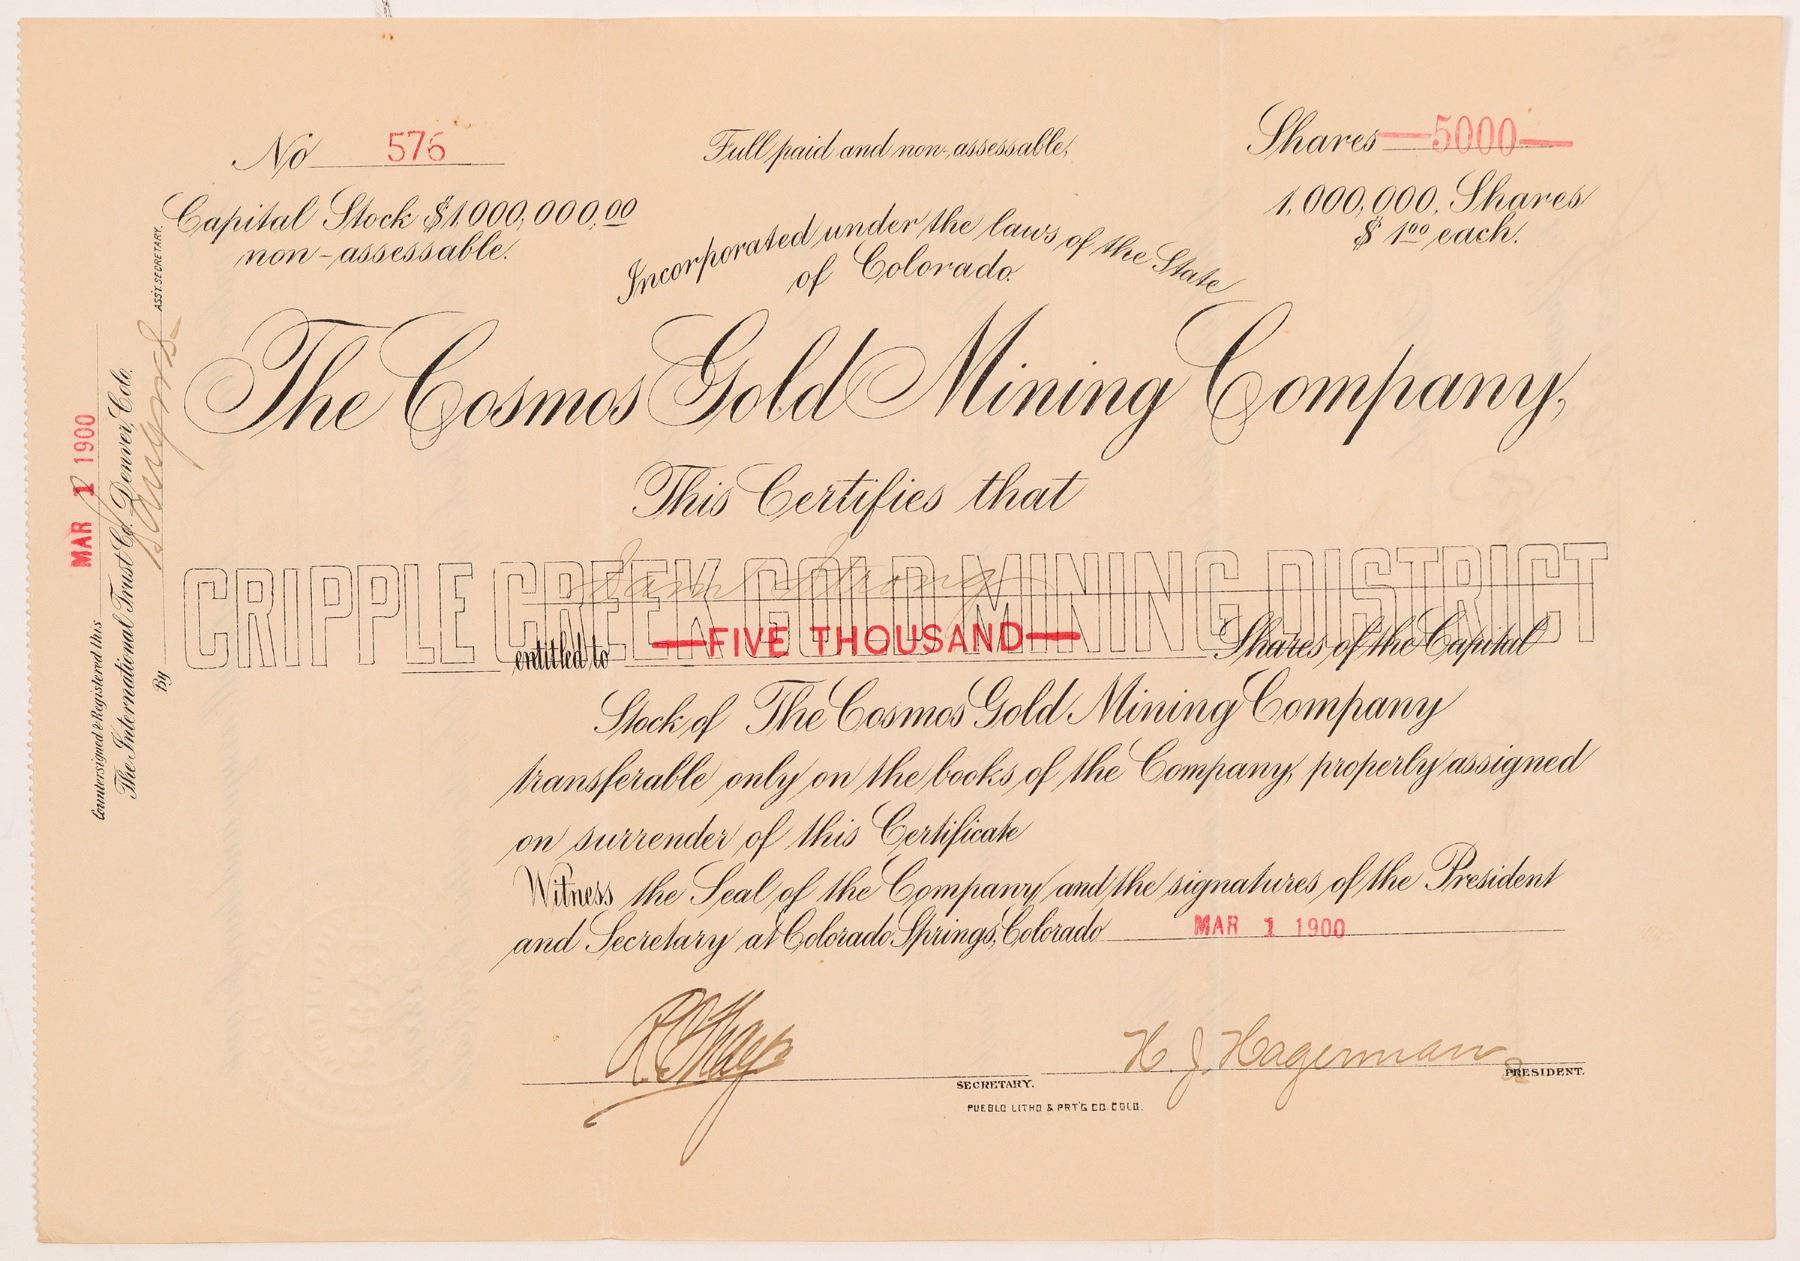 No 576
Full paid and non-assessable.
Shares 5000
Capital Stock $1,000,000.00
non-assessable.
1,000,000, Shares
$1.00 each.
Incorporated under the laws of the State
of Colorado.
The Cosmos Gold Mining Company,
This Certifies that
CRIPPLE CREEK GOLD MINING DISTRICT
Sam Strong
entitled to FIVE THOUSAND Shares of the Capital
Stock of The Cosmos Gold Mining Company
transferable only on the books of the Company, properly assigned
on surrender of this Certificate
Witness the Seal of the Company and the signatures of the President
and Secretary at Colorado Springs, Colorado MAR 1 1900
SECRETARY.
H. J. Hagerman
PRESIDENT.
PUEBLO LITHO & PRT'G CO. COLO.
MAR 1 1900
Countersigned & Registered this
The International Trust Co. Denver, Colo.
By ASS'T. SECRETARY.